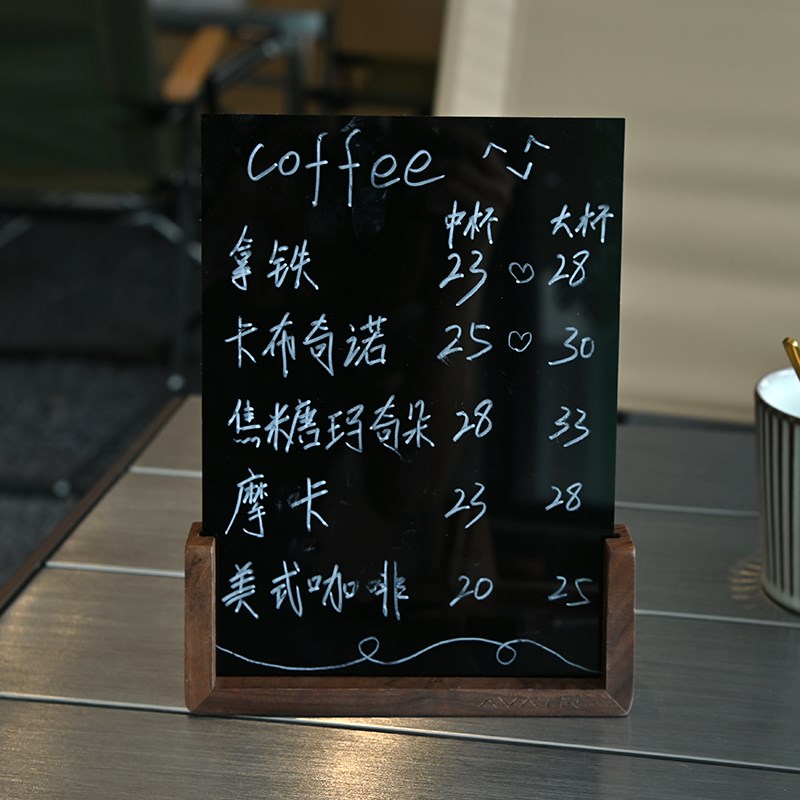 coffee
中杯 大杯
拿铁 23 ♡ 28
卡布奇诺 25 ♡ 30
焦糖玛奇朵 28 33
摩卡 23 28
美式咖啡 20 25